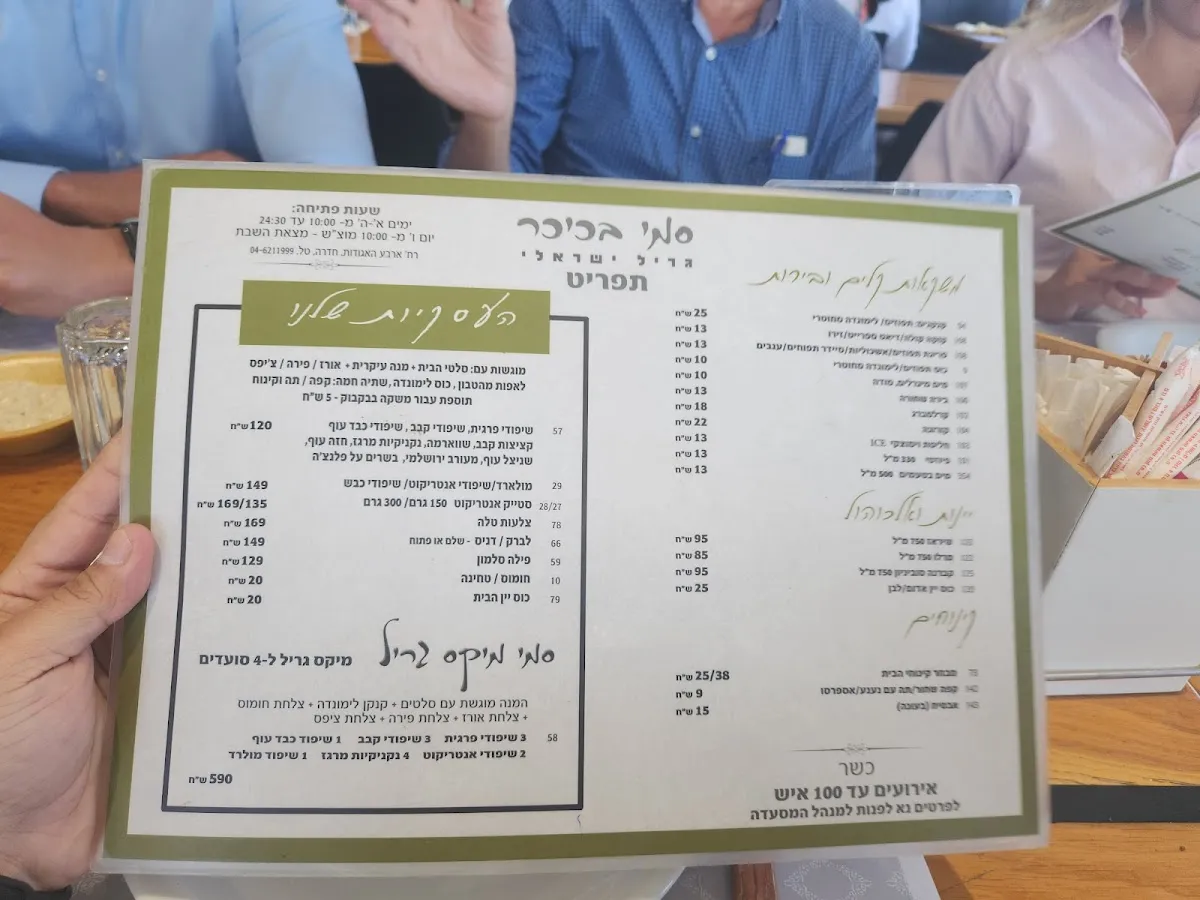 סמי בכיכר
גריל ישראלי
תפריט
שעות פתיחה:
ימים א'-ה' מ- 10:00 עד 24:30
יום ו' מ- 10:00 מוצ"ש - מצאת השבת
רח' ארבע האגודות, חדרה, טל. 04-6211999
משקאות קלים ובירות
קנקנים: תפוזים/ לימונדה מחוסרי 25 ש"ח
קוקה קולה/דיאט ספרייט/זירו 13 ש"ח
פריגת תפוזים/אשכוליות/סיידר תפוחים/ענבים 13 ש"ח
כוס תפוזים/לימונדה מחוסרי 10 ש"ח
מים מינרלים, סודה 10 ש"ח
בירה שחורה 13 ש"ח
קרלסברג 18 ש"ח
קורונה 22 ש"ח
חליטות ויסוצקי ICE 13 ש"ח
פיוזטי 330 מ"ל 13 ש"ח
מים בטעמים 500 מ"ל 13 ש"ח
יינות ואלכוהול
שיראז 750 מ"ל 95 ש"ח
מרלו 750 מ"ל 85 ש"ח
קברנה סוביניון 750 מ"ל 95 ש"ח
כוס יין אדום/לבן 25 ש"ח
קינוחים
מבחר קינוחי הבית 25/38 ש"ח
קפה שחור/תה עם נענע/אספרסו 9 ש"ח
אבטיח (בעונה) 15 ש"ח
כשר
אירועים עד 100 איש
לפרטים נא לפנות למנהל המסעדה
העסקיות שלנו
מוגשות עם: סלטי הבית + מנה עיקרית + אורז / פירה / צ'יפס
לאפות מהטבון, כוס לימונדה, שתיה חמה: קפה / תה וקינוח
תוספת עבור משקה בבקבוק - 5 ש"ח
57 שיפודי פרגית, שיפודי קבב, שיפודי כבד עוף 120 ש"ח
קציצות קבב, שווארמה, נקניקיות מרגז, חזה עוף,
שניצל עוף, מעורב ירושלמי, בשרים על פלנצ'ה
29 מולארד/שיפודי אנטריקוט/ שיפודי כבש 149 ש"ח
28/27 סטייק אנטריקוט 150 גרם/ 300 גרם 169/135 ש"ח
78 צלעות טלה 169 ש"ח
66 לברק / דניס - שלם או פתוח 149 ש"ח
59 פילה סלמון 129 ש"ח
10 חומוס / טחינה 20 ש"ח
79 כוס יין הבית 20 ש"ח
סמי מיקס גריל מיקס גריל ל-4 סועדים
המנה מוגשת עם סלטים + קנקן לימונדה + צלחת חומוס
+ צלחת אורז + צלחת פירה + צלחת ציפס
58 3 שיפודי פרגית 3 שיפודי קבב 1 שיפוד כבד עוף
2 שיפודי אנטריקוט 4 נקניקיות מרגז 1 שיפוד מולרד
590 ש"ח